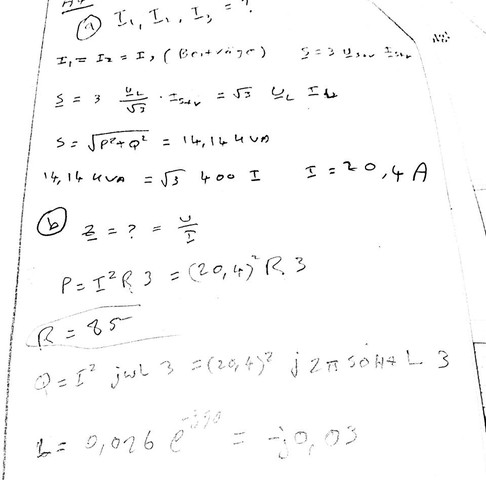 ⓐ I₁, I₁, I₃ = ?
I₁ = I₂ = I₃ (Beiträge) S = 3 U
S = 3 U_L/√3 · I = √3 U_L I
S = √P²+Q² = 14,14 kVA
14,14 kVA = √3 400 I I = 20,4 A
ⓑ Z = ? = U/I
P = I² R 3 = (20,4)² R 3
R = 85
Q = I² jωL 3 = (20,4)² j 2π 50Hz L 3
L = 0,026 e^-j90 = -j0,03